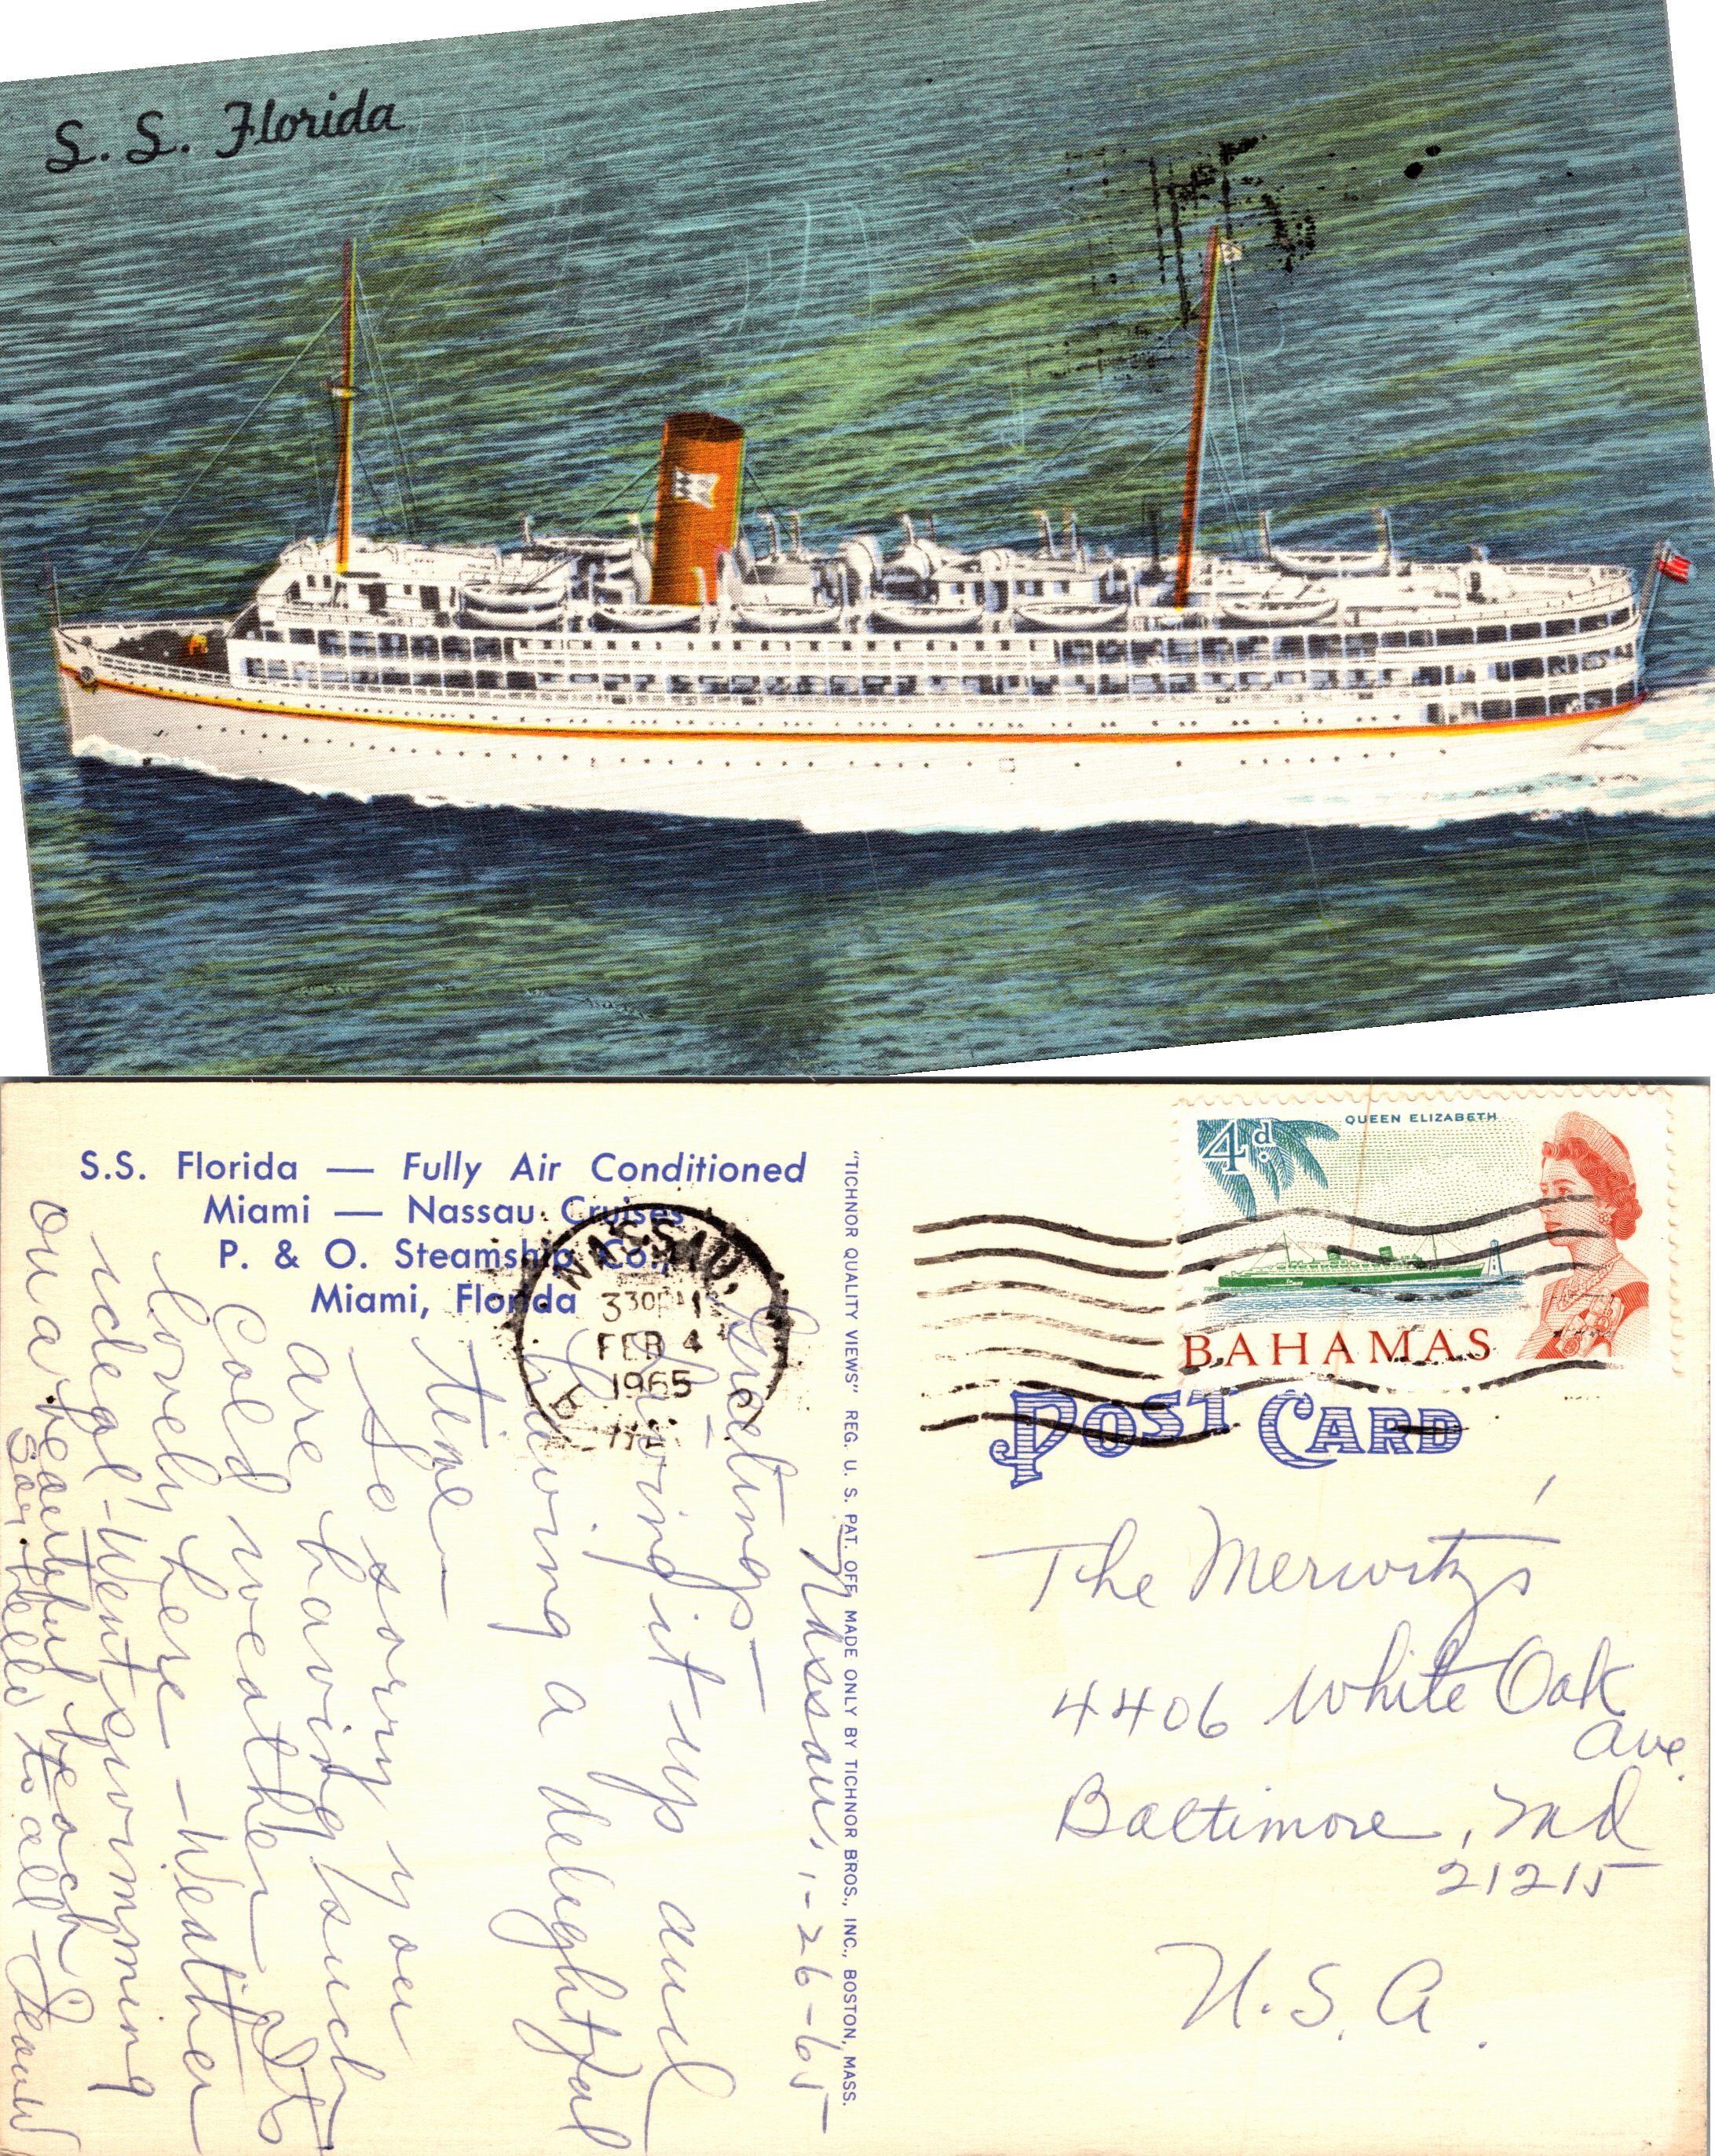 S. S. Florida
S.S. Florida — Fully Air Conditioned
Miami — Nassau Cruises
P. & O. Steamship Co.,
Miami, Florida
NASSAU,
330PM
FEB 4
1965
"TICHNOR QUALITY VIEWS" REG. U. S. PAT. OFF. MADE ONLY BY TICHNOR BROS., INC., BOSTON, MASS.
QUEEN ELIZABETH
4d.
BAHAMAS
POST CARD
Nassau, 1-26-65
Greetings—
Living it up and
having a delightful
time—
So sorry you
are having such
cold weather. It's
lovely here — Weather
ideal - Went swimming
on a beautiful beach
Say hello to all -
The Merwitz's
4406 White Oak
Ave.
Baltimore, Md
21215
U.S.A.